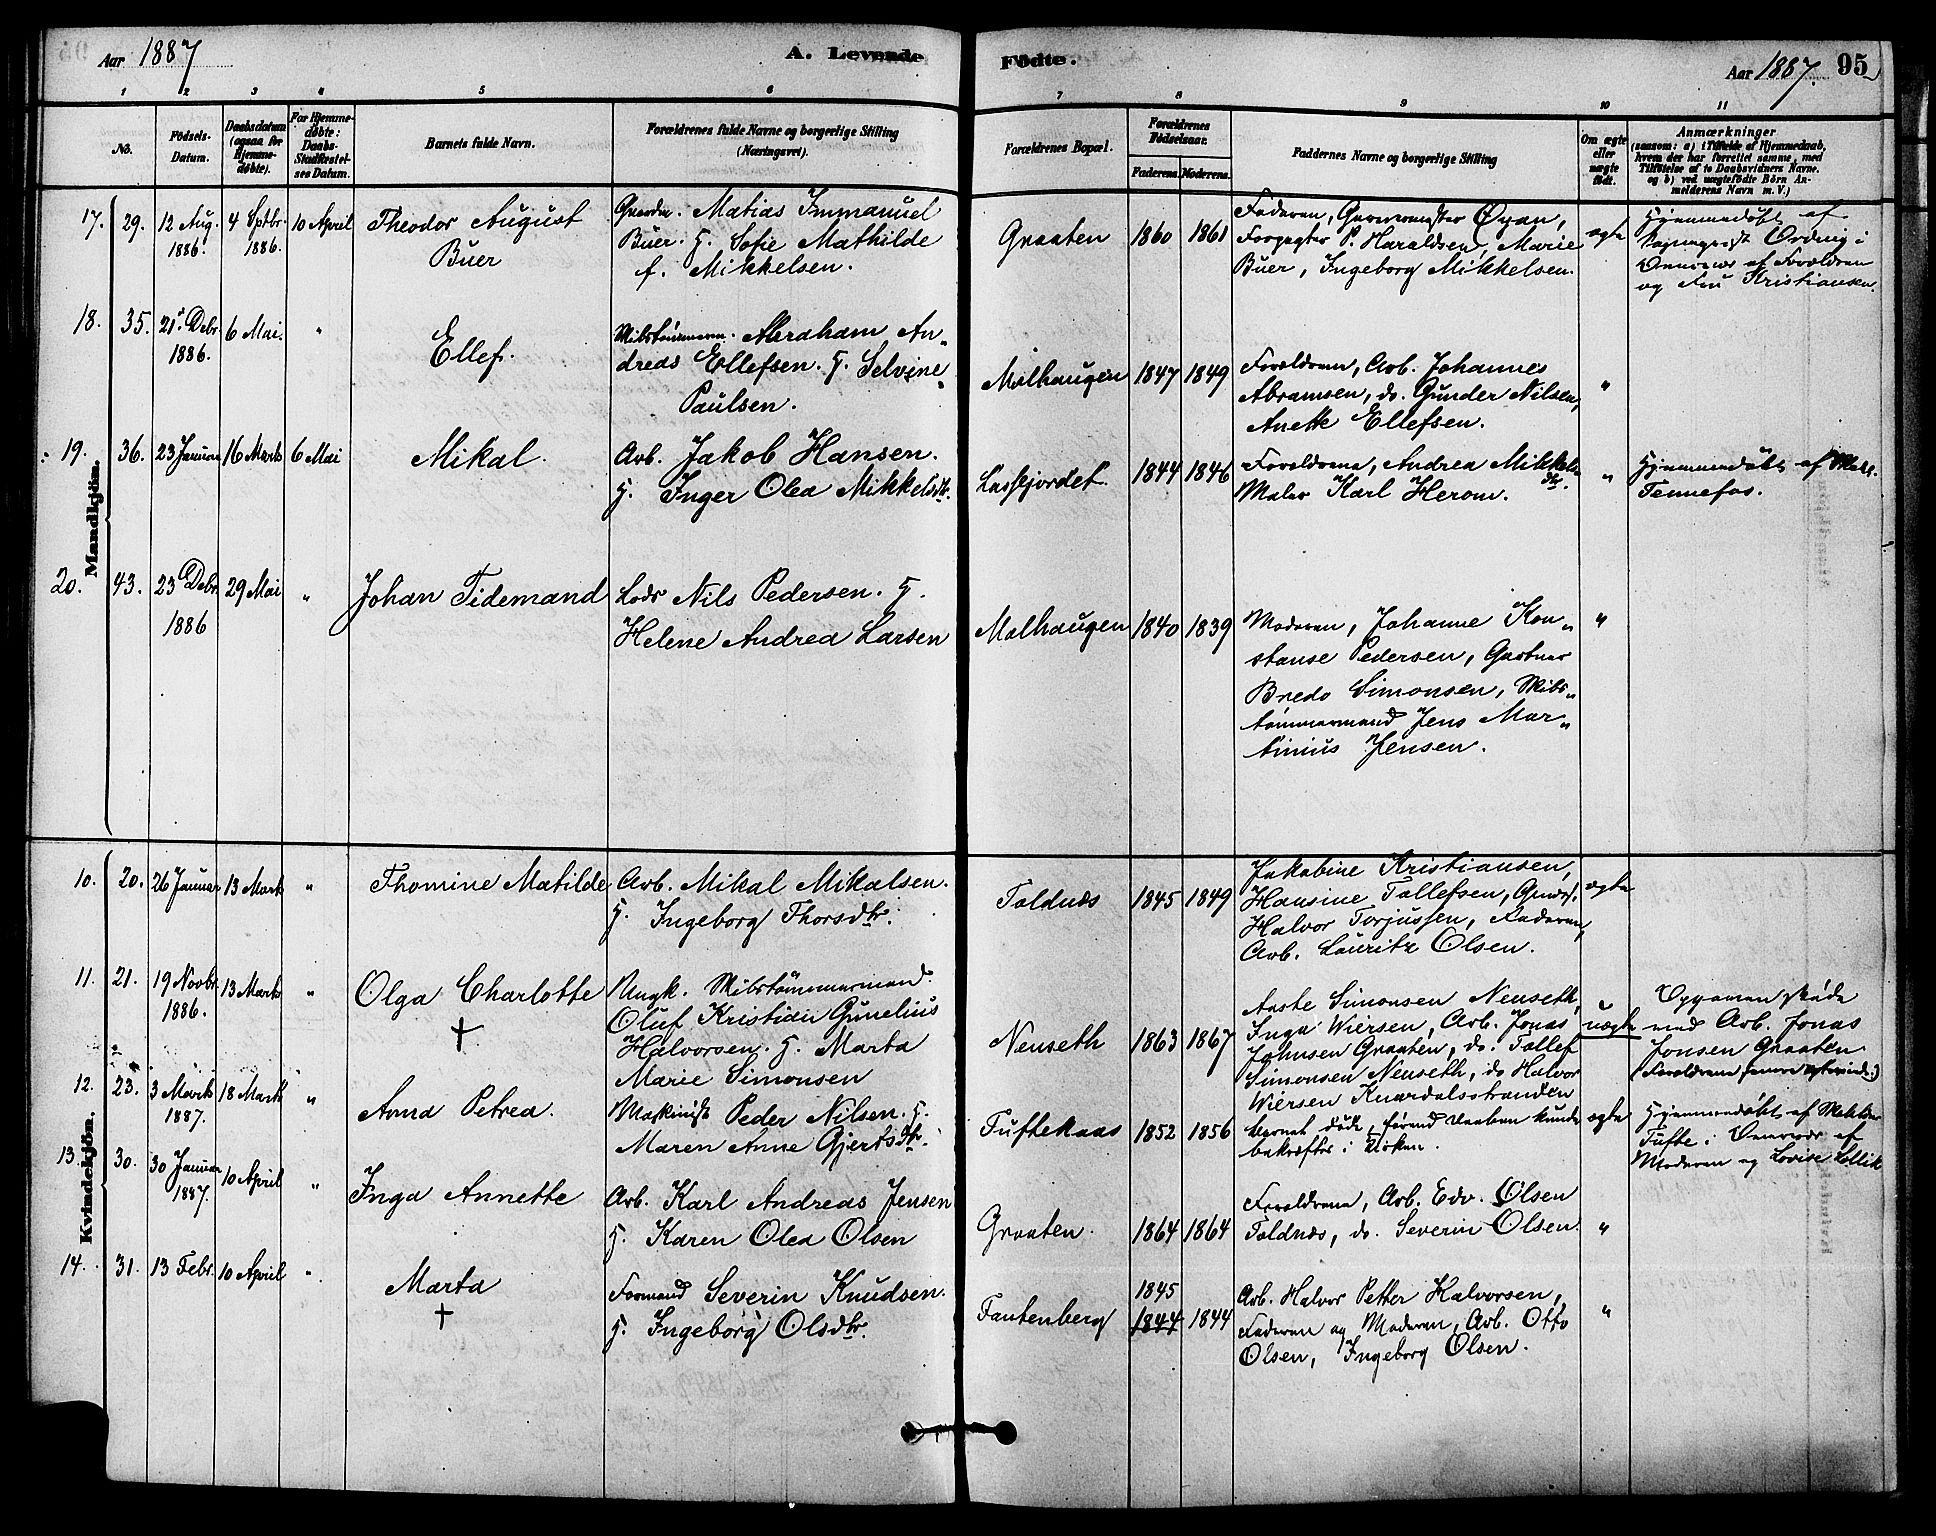 Aar 1887
A. Levende
Fødte.
Aar 1887. 95
1 2 3 4 5 6 7 8 9 10 11
No.
Fødsels-
Datum.
Daabsdatum
(ogsaa for
Hjemme-
døbte).
For Hjemme-
døbte:
Daabs-
Stadfæstel-
ses Datum.
Barnets fulde Navn.
Forældrenes fulde Navne og borgerlige Stilling
(Næringsvei).
Forældrenes Bopæl.
Forældrenes
Fødselsaar.
Faderens. Moderens.
Faddernes Navne og borgerlige Stilling
Om ægte
eller
uægte
født.
Anmærkninger
(saasom: a) i Tilfælde af Hjemmedaab,
hvem der har forrettet samme, med
Tilføielse af to Daabsvidners Navne.
og b) ved uægtefødte Børn An-
melderens Navn m. V.)
Mandkjøn.
17. 29. 12 Aug. 1886. 4 Sptbr. 1886. 10 April
Theodor August
Buer
Matias Immanuel
Buer. H. Sofie Mathilde
f. Mikkelsen.
Graaten 1860 1861
Faderen, Øyan,
P. Haraldsen, Marie
Buer, Ingeborg Mikkelsen.
ægte
Hjemmedøbt af
Ordnig i
Overvær af Forældren
og Fru Kristiansen.
18. 35. 21 Debr. 1886. 6 Mai. "
Ellef.
Skibstømmerm. Abraham An-
dreas Ellefsen. H. Selvine
Paulsen.
Mælhaugen 1847 1849
Forældrene, Arb. Johannes
Abramsen, do. Gunder Nilsen,
Anette Ellefsen.
"
19. 36. 23 Januar 16 Marts 6 Mai
Mikal.
Arb. Jakob Hansen.
H. Inger Olea Mikkelsdtr.
Lassejordet. 1844 1846
Forældrene, Andrea Mikkels-
dtr.
Maler Karl Herom.
"
Hjemmedøbt af
Tennefos.
20. 43. 23 Debr. 1886 29 Mai "
Johan Tidemand
Lods Nils Pedersen. H.
Helene Andrea Larsen
Mælhaugen 1840 1839
Moderen, Johanne Kon-
stanse Pedersen, Gartner
Bredo Simonsen, Skibs-
tømmermand Jens Mar-
tinius Jensen.
"
Kvindekjøn.
10. 20. 26 Januar 13 Marts "
Thomine Matilde
Arb. Mikal Mikalsen.
H. Ingeborg Thorsdtr.
Toldnæs 1845 1849
Jakobine Kristiansen,
Hansine Tollefsen,
Halvor Torjussen, Faderen,
Arb. Lauritz Olsen.
ægte
11. 21. 19 Novbr. 1886. 13 Marts "
Olga Charlotte
†
Ungk. Skibstømmermand
Oluf Kristian Gunelius
Halvorsen. H. Marta
Marie Simonsen
Neuseth 1863 1867
Aaste Simonsen Neuseth,
Inga Wiersen, Arb. Jonas
Johnsen Graaten, do. Tollef
Simonsen Neuseth, do Halvor
Wiersen Knardalsstranden
uægte
Opgaven skede
ved Arb. Jonas
Jonsen Graaten
(Forældrene senere ægteviede.)
12. 23. 3 Marts 1887. 18 Marts "
Anna Petrea.
Maskinist Peder Nilsen. H.
Maren Anne Gjertsdtr.
Tuftekaas 1852 1856
Barnet døde, førend Daaben kunde
bekræftes i Kirken.
ægte
Hjemmedøbt af
Tufte i Overvær af
Moderen og Lovise Lollik
13. 30. 30 Januar 1887. 10 April "
Inga Annette
Arb. Karl Andreas Jensen
H. Karen Olea Olsen
Graaten. 1864 1864
Forældrene, Arb. Edv. Olsen
Toldnæs, do. Severin Olsen.
"
14. 31. 13 Febr. 10 April "
Marta
†
Formand Severin Knudsen.
H. Ingeborg Olsdtr.
Fantenberg 1845 1844 1844
Arb. Halvor Petter Halvorsen,
Faderen og Moderen, Arb. Otto
Olsen, Ingeborg Olsen.
"